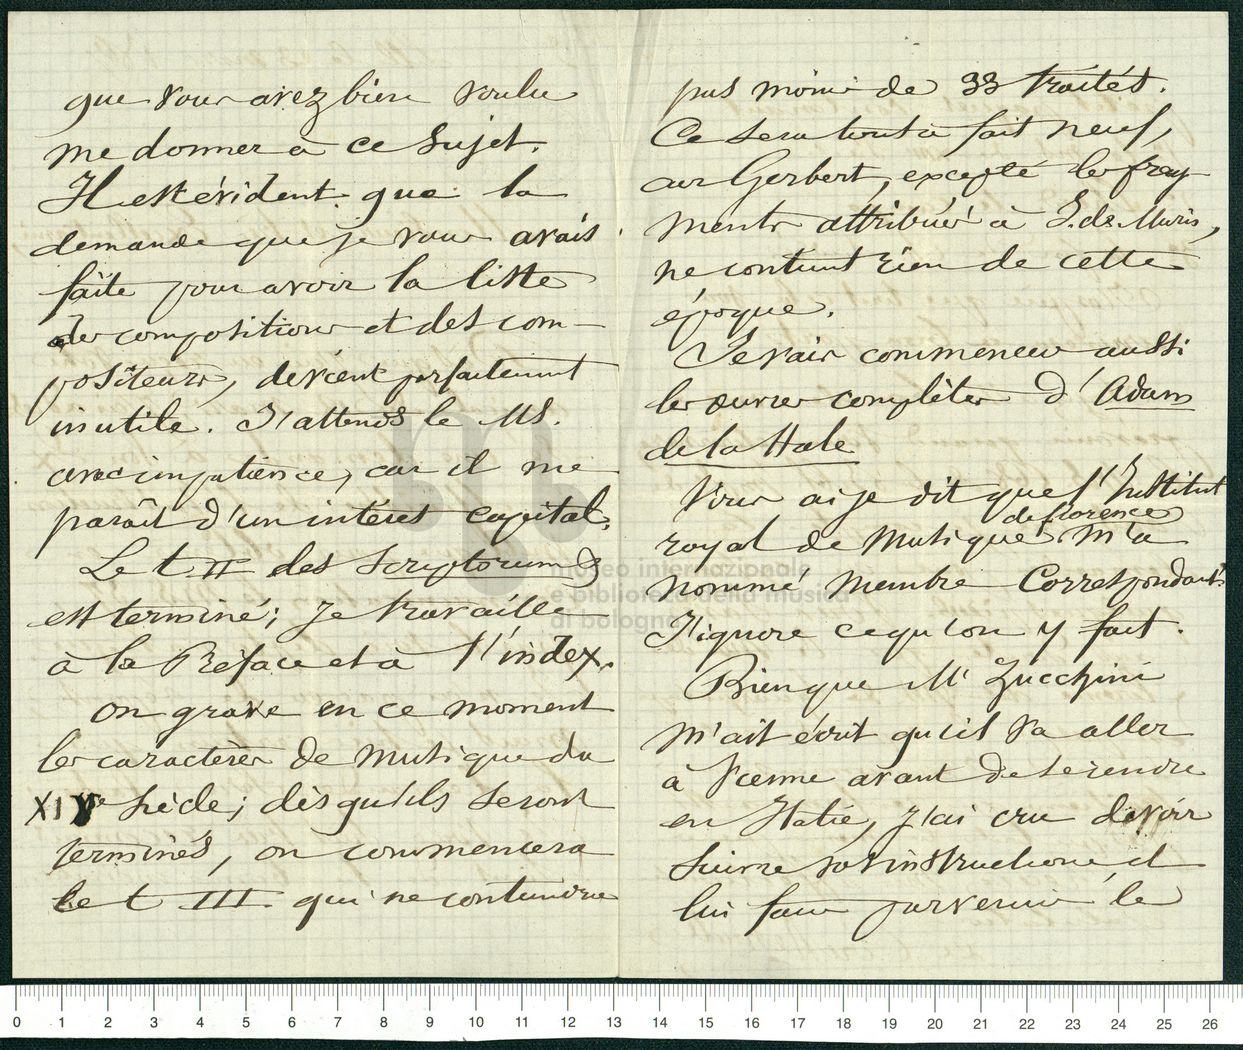 que vous avez bien voulu
me donner à ce sujet.
Il est évident que la
demande que je vous avais
faite pour avoir la liste
des compositions et des com-
positeurs, devient parfaitement
inutile. J'attends le MS.
avec impatience, car il me
paraît d'un intérêt capital.
Le t II des Scriptorum
est terminé; je travaille
à la Préface et à l'index.
On grave en ce moment
les caractères de musique du
XIVe siècle; dès qu'ils seront
terminés, on commencera
le t III qui ne contiendra
pas moins de 33 traités.
Ce sera tout à fait neuf,
car Gerbert, excepté les frag-
ments attribués à J. de Muris,
ne contient rien de cette
époque.
Je vais commencer aussi
les œuvres complètes d'Adam
de la Hale
Vous ai je dit que l'Institut
royal de Musique de florence m'a
nommé membre Correspondant.
J'ignore ce qu'on y fait.
Bien que Mr Zucchini
m'ait écrit qu'il va aller
à Vienne avant de se rendre
en Italie, j'ai cru devoir
suivre vos instructions et
lui faire parvenir le
museo internazionale
e biblioteca della musica
di bologna
0 1 2 3 4 5 6 7 8 9 10 11 12 13 14 15 16 17 18 19 20 21 22 23 24 25 26